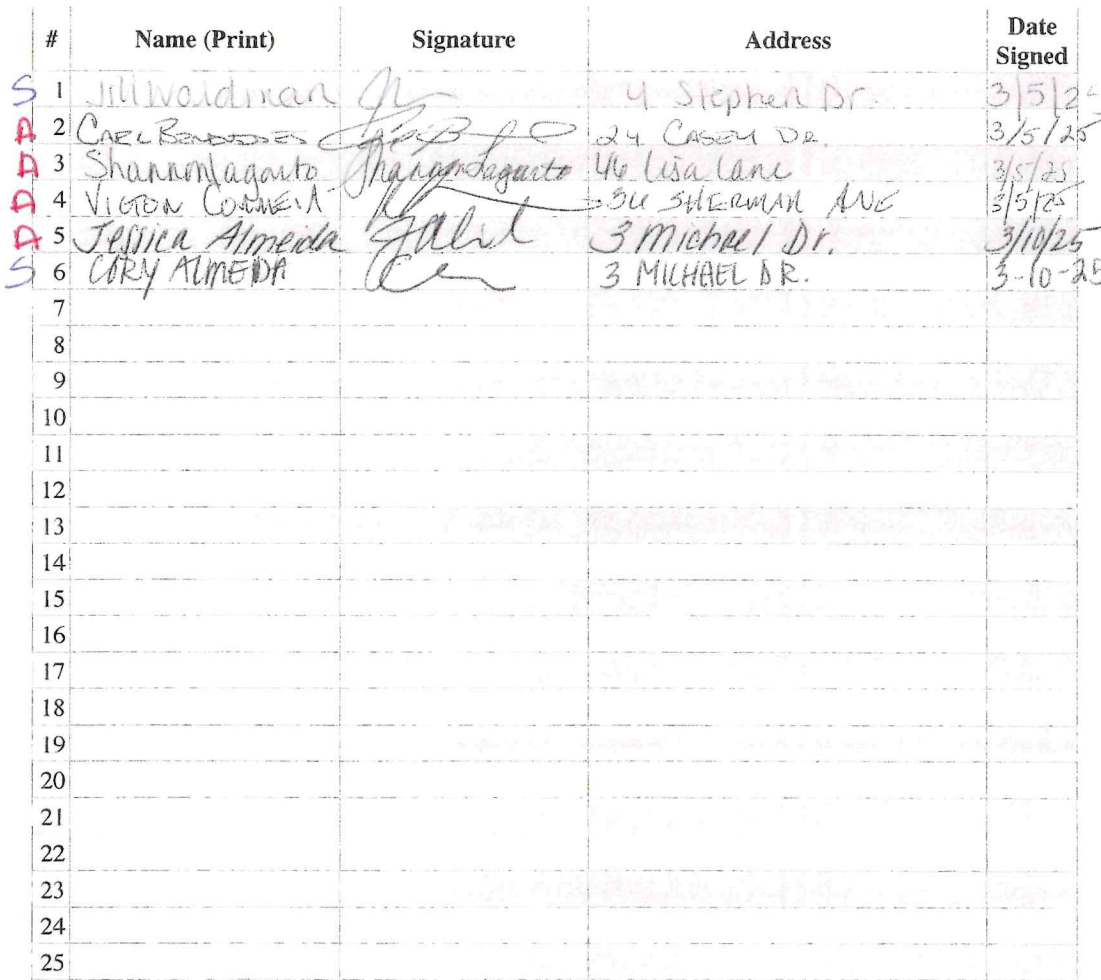 # Name (Print) Signature Address Date Signed
S 1 Jill Waldman 4 Stephen Dr. 3/5/25
A 2 CARL 24 CASEY DR. 3/5/25
A 3 Shannon Lagarto Shannon Lagarto 46 Lisa Lane 3/5/25
A 4 VICTOR CORREIA 36 SHERMAN AVE 3/5/25
A 5 Jessica Almeida 3 Michael Dr. 3/10/25
S 6 CORY ALMEIDA 3 MICHAEL DR. 3-10-25
7
8
9
10
11
12
13
14
15
16
17
18
19
20
21
22
23
24
25